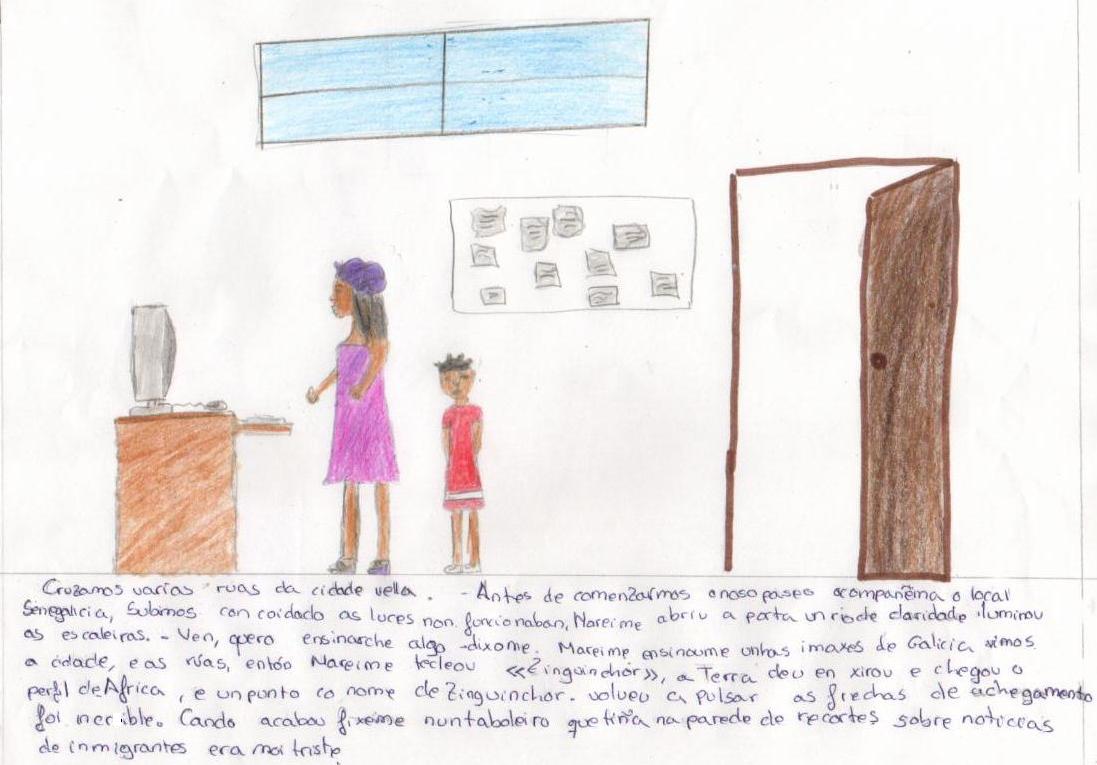 Cruzamos varias rúas da cidade vella. - Antes de comenzarmos o noso paseo acompañeina o local
Senegalicia, Subimos con coidado as luces non funcionaban, Mareime abriu a porta un río de claridade iluminou
as escaleiras. - Ven, quero ensinarche algo -díxome. Mareime ensinoume unhas imaxes de Galicia vimos
a cidade, e as rúas, entón Mareime tecleou «Zinguinchor», a Terra deu en xirou e chegou o
perfil de Africa, e un punto co nome de Zinguinchor. volveu a pulsar as frechas de achegamento
foi incrible. Cando acabou fixeime nun taboleiro que tiña na parede de recortes sobre noticias
de inmigrantes era moi triste